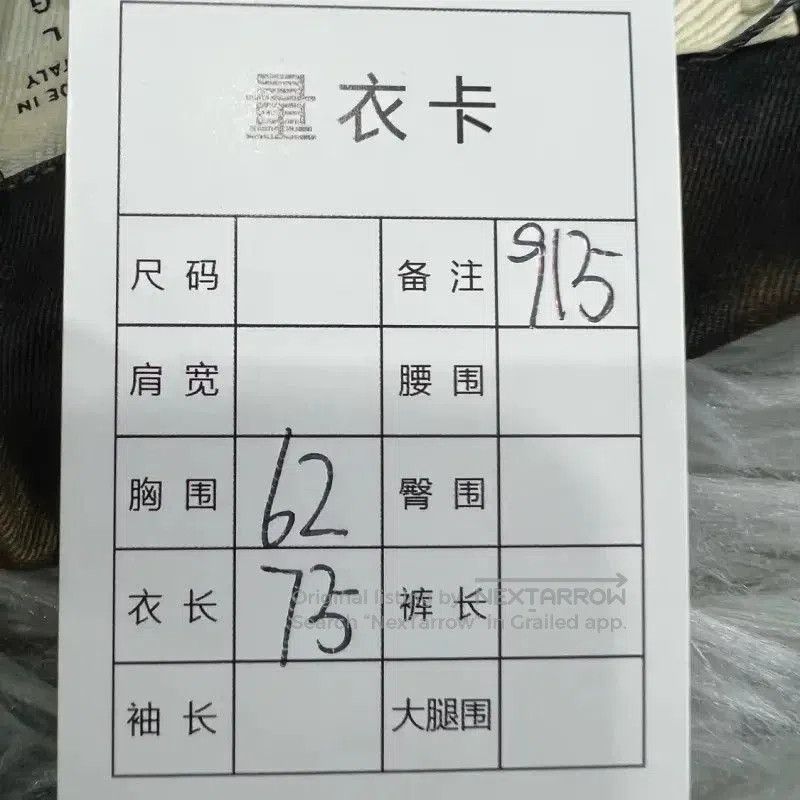 G
L
MADE IN
ITALY
量衣卡
尺码 备注 915
肩宽 腰围
胸围 62 臀围
衣长 75 裤长
Original listing by NEXTARROW
Search "NexTarrow" in Grailed app.
袖长 大腿围